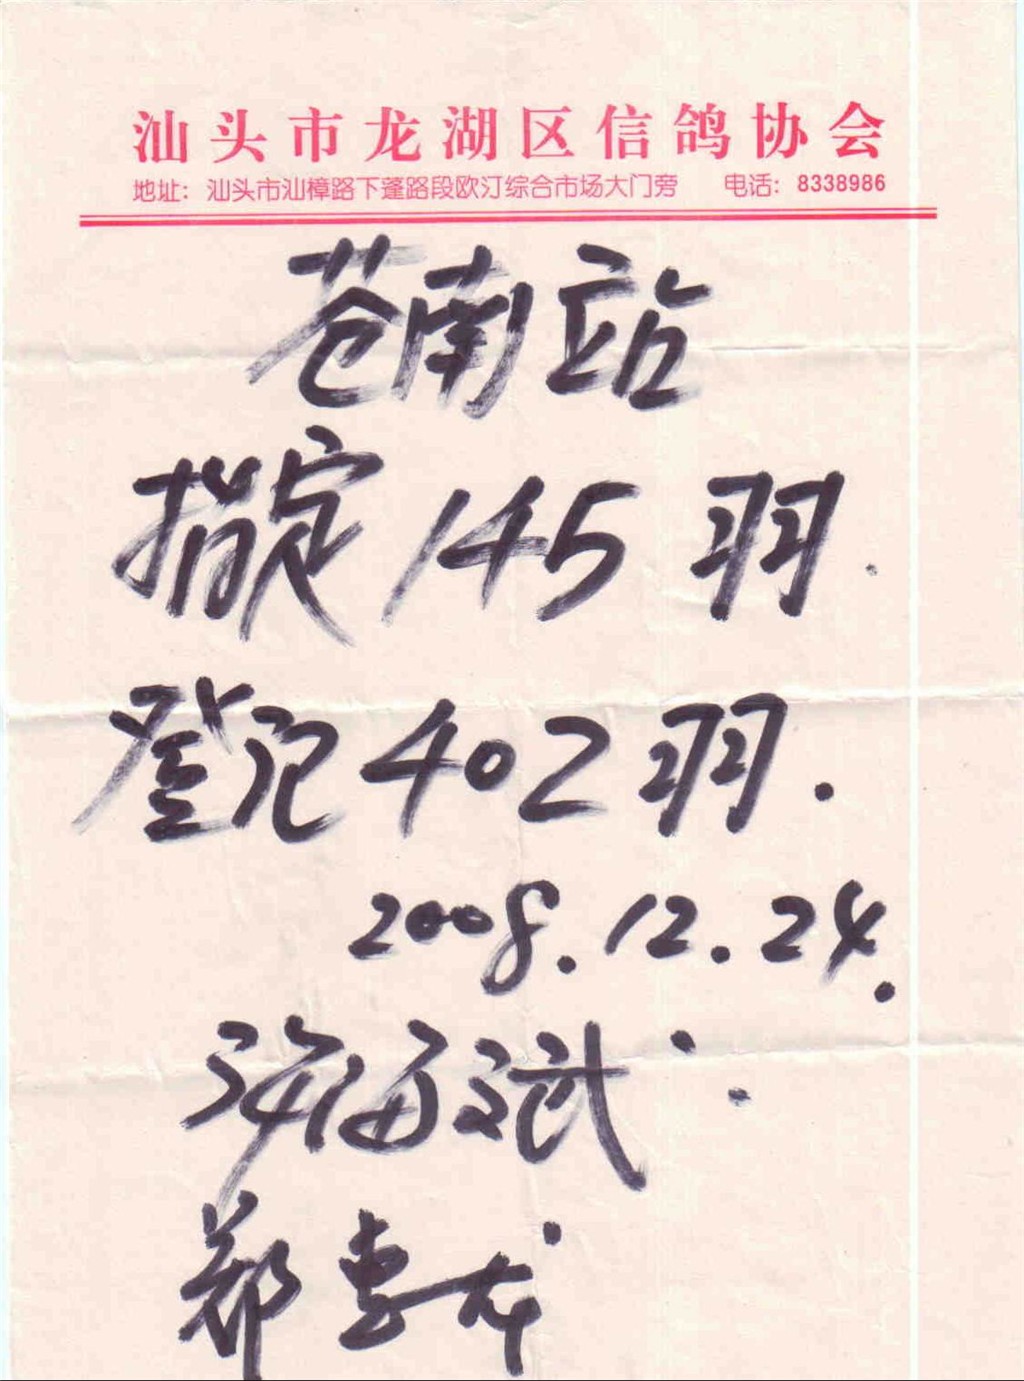 汕头市龙湖区信鸽协会
地址：汕头市汕樟路下蓬路段欧汀综合市场大门旁 电话：8338986
苍南站
指定145羽.
登记402羽.
2008.12.24.
海斌
郑李龙